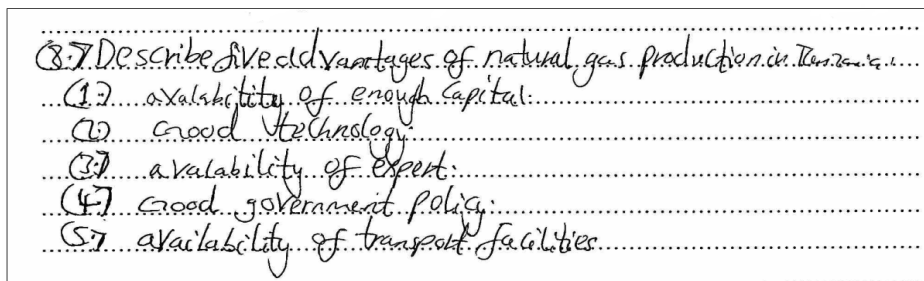 (8.7 Describe five advantages of natural gas production in Tanzania.
(1.) avalability of enough Capital.
(2.) Good technology.
(3.) avalability of expert.
(4.) Good government policy.
(5.) availability of transport facilities